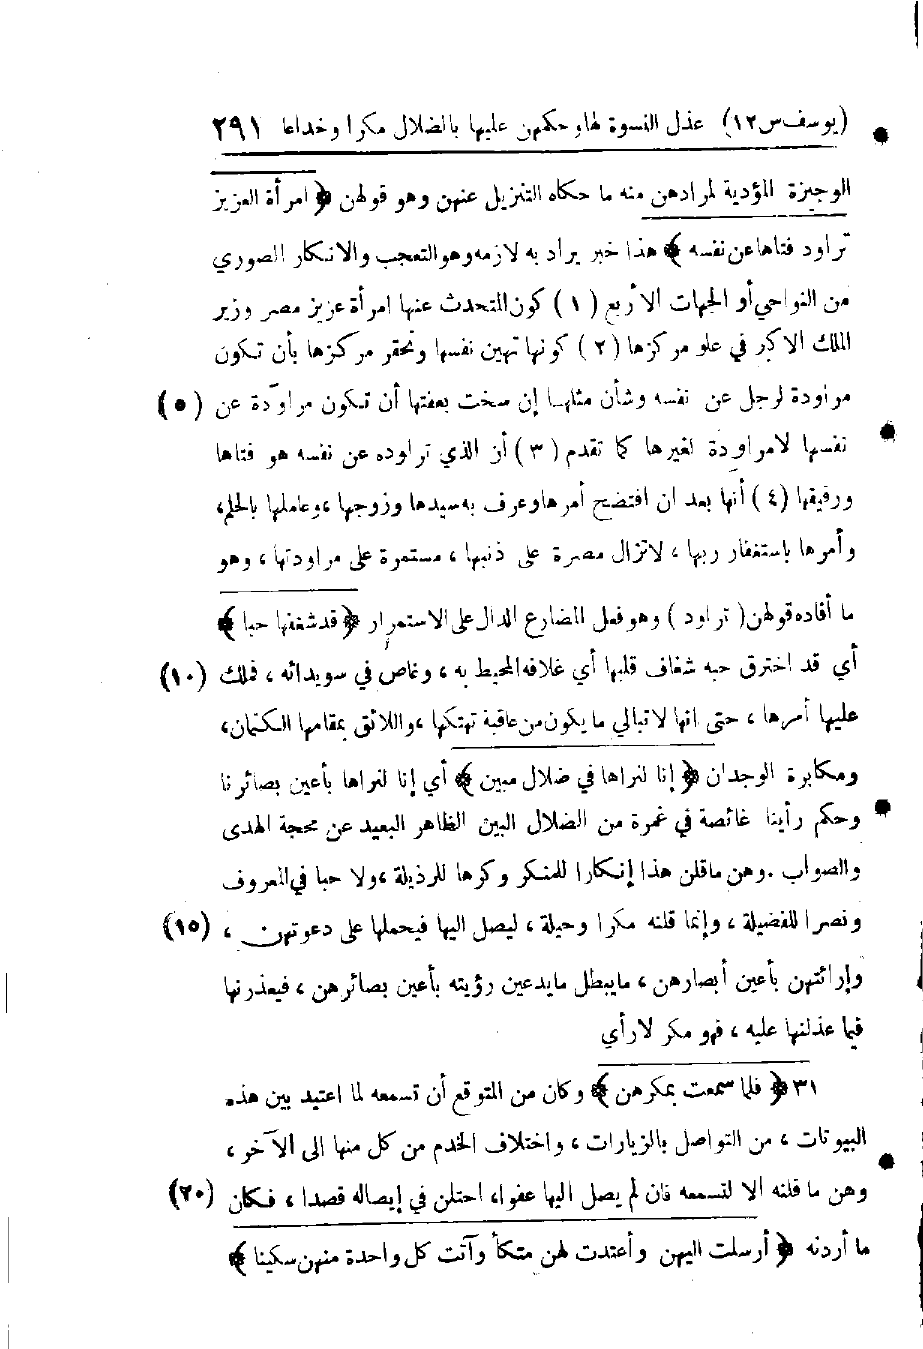 (يوسف س ١٢) عذل النسوة لها وحكمهن عليها بالضلال مكرا وخداعا ٢٩١
الوجيزة المؤدية لمرادهن منه ما حكاه التنزيل عنهن وهو قولهن ﴿ امرأة العزيز
تراود فتاها عن نفسه ﴾ هذا خبر يراد به لازمه وهو التعجب والانكار الصوري
من النواحي أو الجهات الأربع ( ١ ) كون المتحدث عنها امرأة عزيز مصر وزير
الملك الاكبر في علو مركزها ( ٢ ) كونها تهين نفسها وتحقر مركزها بأن تكون
مراودة لرجل عن نفسه وشأن مثلها إن سخت بعفتها أن تكون مراودة عن (٥)
نفسها لا مراودة لغيرها كما تقدم ( ٣ ) أن الذي تراوده عن نفسه هو فتاها
ورقيقها (٤) أنها بعد ان افتضح أمرها وعرف به سيدها وزوجها ، وعاملها بالحلم،
وأمرها باستغفار ربها ، لا تزال مصرة على ذنبها ، مستمرة على مراودتها ، وهو
ما أفاده قولهن ( تراود ) وهو فعل المضارع الدال على الاستمرار ﴿ قد شغفها حبا ﴾
أي قد اخترق حبه شغاف قلبها أي غلافه المحيط به ، وغاص في سويدائه ، فملك (١٠)
عليها أمرها ، حتى انها لا تبالي ما يكون من عاقبة تهتكها ، واللائق بمقامها الكتمان،
ومكابرة الوجدان ﴿ إنا لنراها في ضلال مبين ﴾ أي إنا لنراها بأعين بصائرنا
وحكم رأينا غائصة في غمرة من الضلال البين الظاهر البعيد عن محجة الهدى
والصواب . وهن ما قلن هذا إنكارا للمنكر وكرها للرذيلة ، ولا حبا في المعروف
ونصرا للفضيلة ، وإنما قلنه مكرا وحيلة ، ليصل اليها فيحملها على دعوتهن ، (١٥)
وإرائتهن بأعين أبصارهن ، ما يبطل ما يدعين رؤيته بأعين بصائرهن ، فيعذرنها
فيما عذلنها عليه ، فهو مكر لا رأي
٣١ ﴿ فلما سمعت بمكرهن ﴾ وكان من المتوقع أن تسمعه لما اعتيد بين هذه
البيوتات ، من التواصل بالزيارات ، واختلاف الخدم من كل منها الى الآخر ،
وهن ما قلنه الا لتسمعه فان لم يصل اليها عفوا، احتلن في إيصاله قصدا ، فكان (٢٠)
ما أردنه ﴿ أرسلت اليهن وأعتدت لهن متكأ وآتت كل واحدة منهن سكينا ﴾